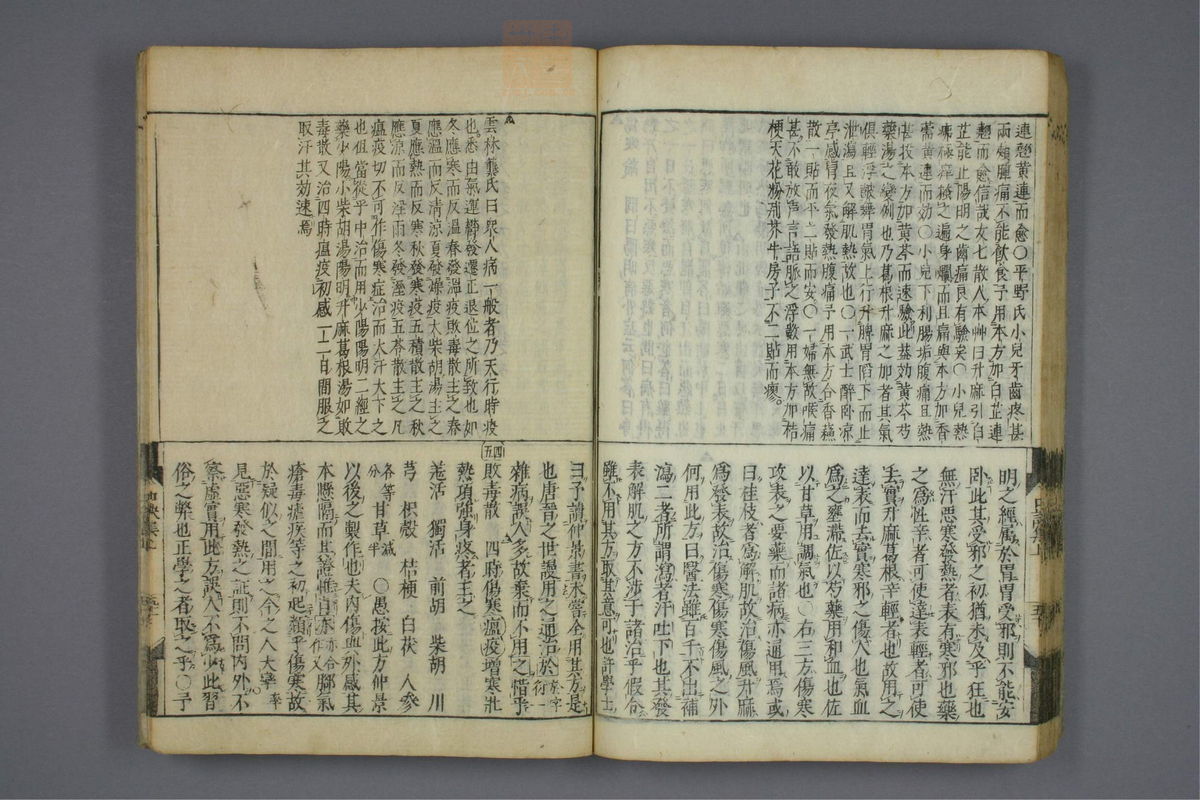 連翹黃連而愈〇平野氏小兒牙齒疼甚
兩頰腫痛不能飲食予用本方加白芷連
翹而愈信哉友七散八本艸曰升麻引白
芷能止陽明之齒痛良有驗矣〇小兒熱
而且扁與本方加香
薷黃連而効〇小兒下利腸垢腹痛且熱
甚投本方加黃芩而速驗此基効黃芩芍
藥湯之變例也乃葛根升麻之加者其氣
俱輕浮皷舞胃氣上行升脾胃陷下而止
泄瀉且又解肌熱故也〇一武士醉臥凉
亭感冒夜氣發熱腹痛予用本方合香蘇
散一貼而平二貼而安〇一婦無故喉痛
甚不敢放声言語脈之浮數用本方加桔
梗天花粉荊芥牛房子不二貼而瘳。
明之經屬於胃胃受邪則不能安
臥此其受邪之初猶未及乎狂也
無汗惡寒發熱者表有寒邪也藥
之爲性辛者可使達表輕者可使
去實升麻葛根辛輕者也故用之
達表而去實寒邪之傷人也氣血
爲之壅滯佐以芍藥用和血也佐
以甘草用調氣也〇右三方傷寒
攻表之要藥而諸病亦通用焉或
曰桂枝者爲解肌故治傷風升麻
爲發表故治傷寒傷寒傷風之外
何用此方曰醫法雖百千不出補
瀉二者所謂瀉者汗吐下也其發
表解肌之方不涉于諸治乎假令
雖不用其方取其意可也許學士
雲林龔氏曰眾人病一般者乃天行時疫
也悉由氣運鬱發遷正退位之所致也如
冬應寒而反溫春發溫疫敗毒散主之春
應溫而反清涼夏發燥疫大柴胡湯主之
夏應熱而反寒秋發寒疫五積散主之秋
應涼而反淫雨冬發溼疫五苓散主之凡
瘟疫切不可作傷寒症治而大汗大下之
也但當從乎中治而用少陽陽明二經之
藥少陽小柴胡湯陽明升麻葛根湯如敗
毒散又治四時瘟疫初感一二日間服之
取汗其効速焉
曰予讀仲景書未嘗全用其方是
也唐晉之世謾用之通治於
雜病誤人多故棄而不用之惜乎
四五
敗毒散　四時傷寒瘟疫增寒壯
熱項強身疼者主之
羗活　獨活　前胡　柴胡　川
芎　枳殼　桔梗　白茯　人參
各等分甘草減半　〇愚按此方仲景
以後之製作也夫內傷與外感其
本懸隔而其證惟自亦
瘡毒瘧疾等之初起類乎傷寒故
於疑似之間用之今之人大率
見惡寒發熱之証則不問內外不
察虛實用此方誤人不爲少此習
俗之弊也正學之者取之乎〇予